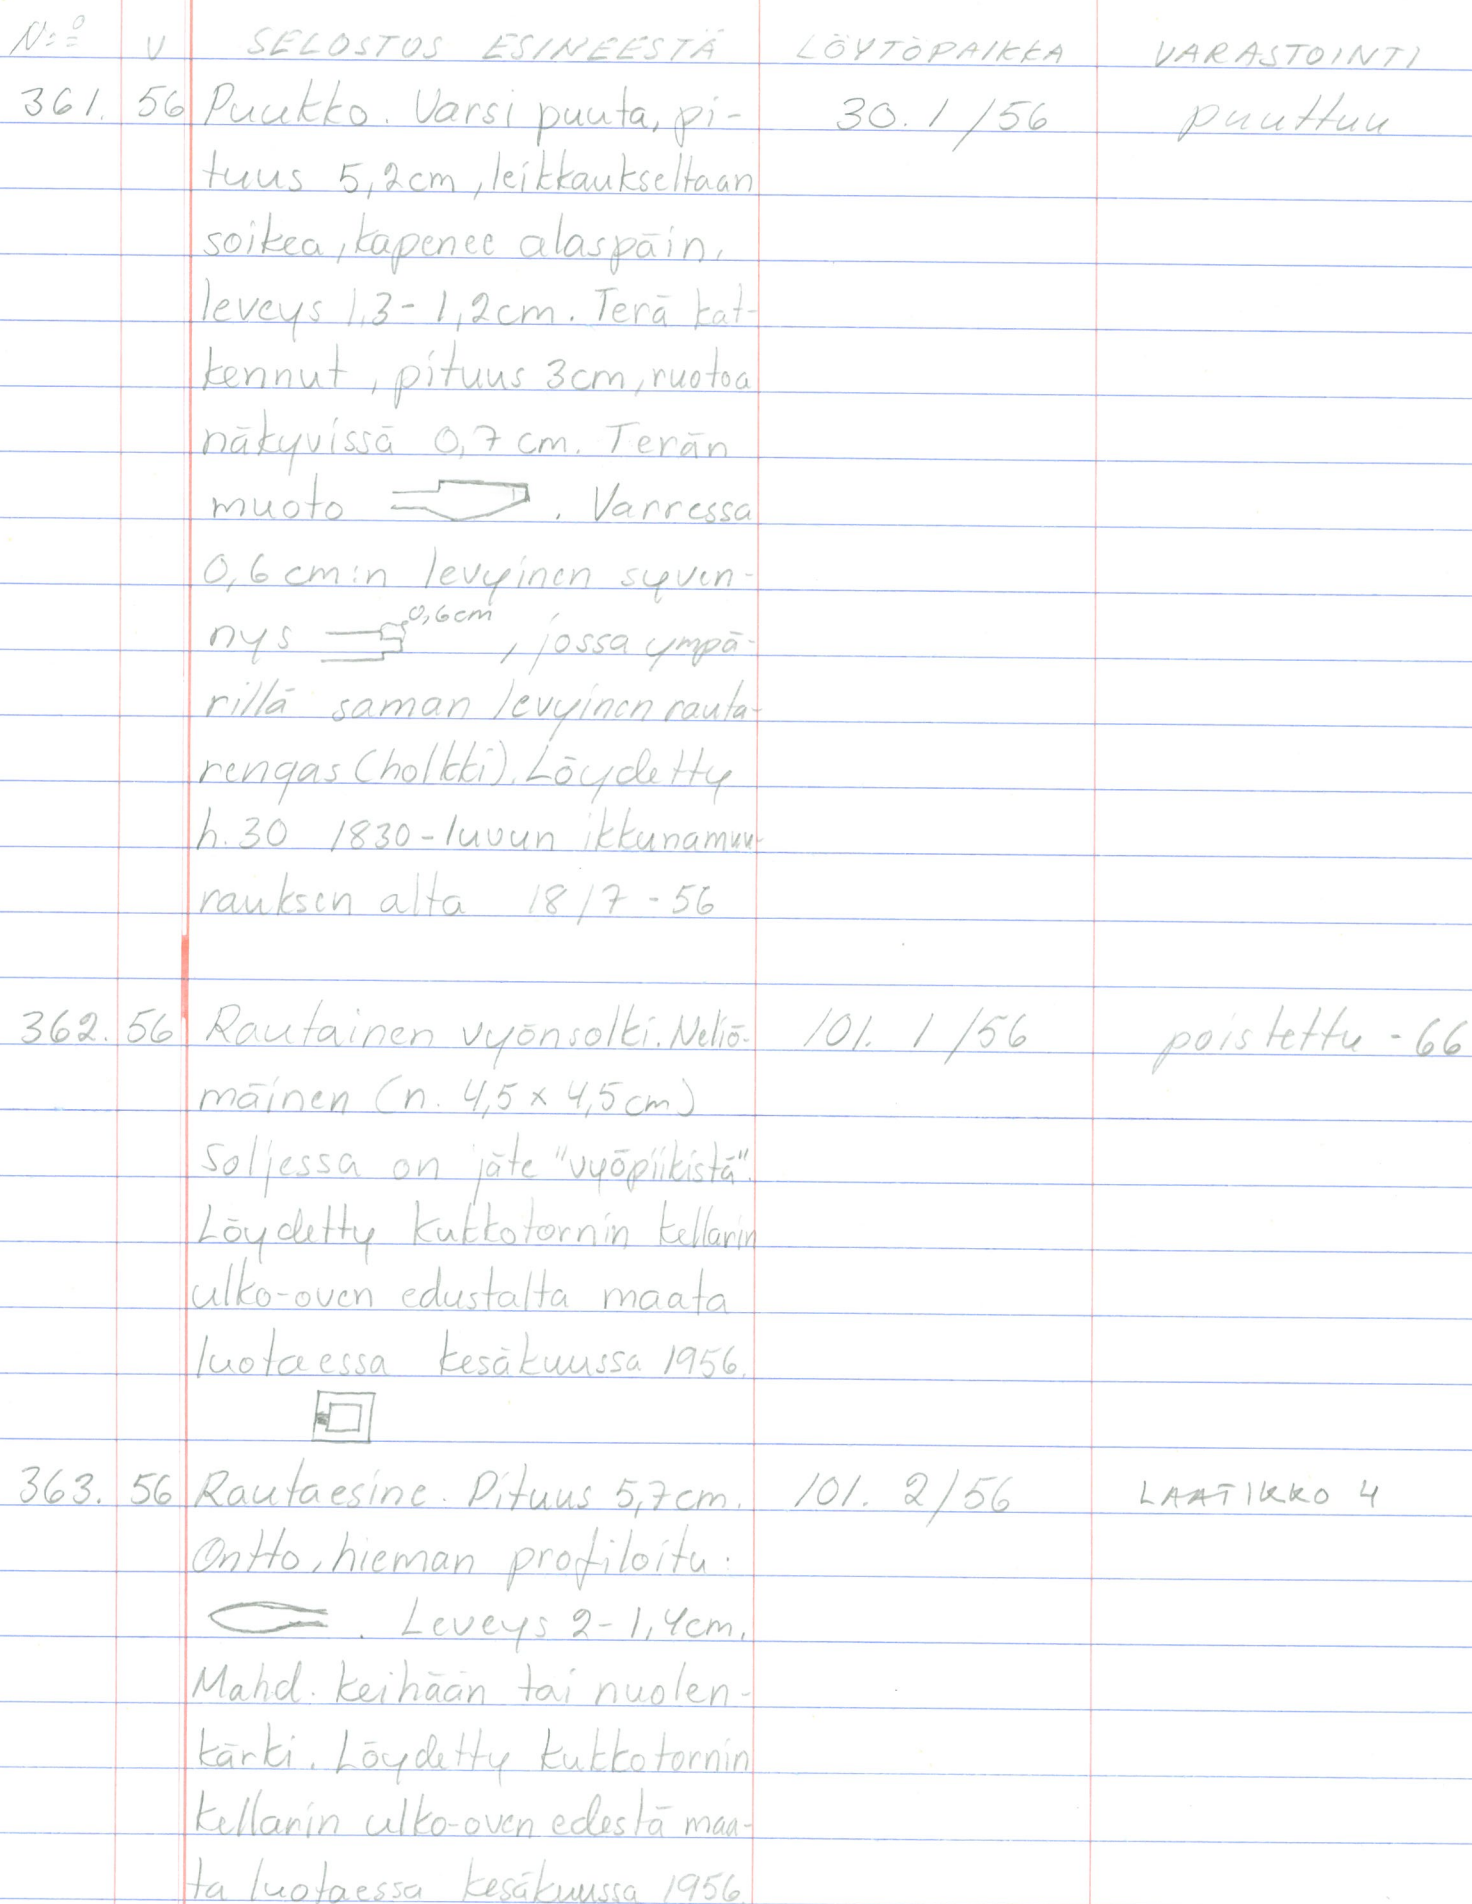 N:o V SELOSTUS ESINEESTÄ LÖYTÖPAIKKA VARASTOINTI
361. 56 Puukko. Varsi puuta, pi- 30. 1/56 puuttuu
tuus 5,2cm, leikkaukseltaan
soikea, kapenee alaspäin,
leveys 1,3-1,2cm. Terä kat-
kennut, pituus 3cm, ruotoa
näkyvissä 0,7 cm. Terän
muoto . Varressa
0,6 cm:n levyinen syven-
nys 0,6cm , jossa ympä-
rillä saman levyinen rauta-
rengas (holkki). Löydetty
h. 30 1830-luvun ikkunamuu-
rauksen alta 18/7 - 56
362. 56 Rautainen vyönsolki. Neliö- 101. 1/56 poistettu - 66
mäinen (n. 4,5 x 4,5cm)
Soljessa on jäte "vyöpiikistä".
Löydetty Kukkotornin kellarin
ulko-oven edustalta maata
luotaessa kesäkuussa 1956.
363. 56 Rautaesine. Pituus 5,7cm. 101. 2/56 LAATIKKO 4
Ontto, hieman profiloitu.
. Leveys 2-1,4cm.
Mahd. keihään tai nuolen-
kärki. Löydetty kukkotornin
kellarin ulko-oven edestä maa-
ta luotaessa kesäkuussa 1956.